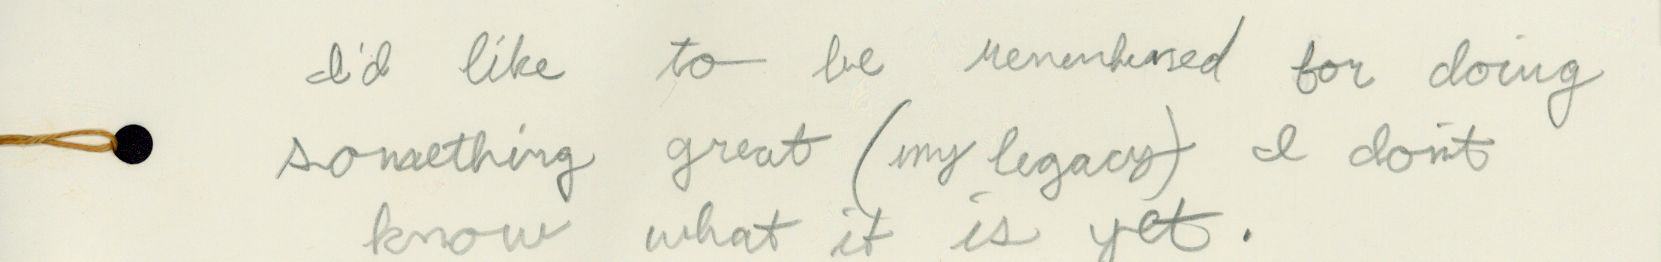 I'd like to be remembered for doing
something great (my legacy) I don't
know what it is yet.